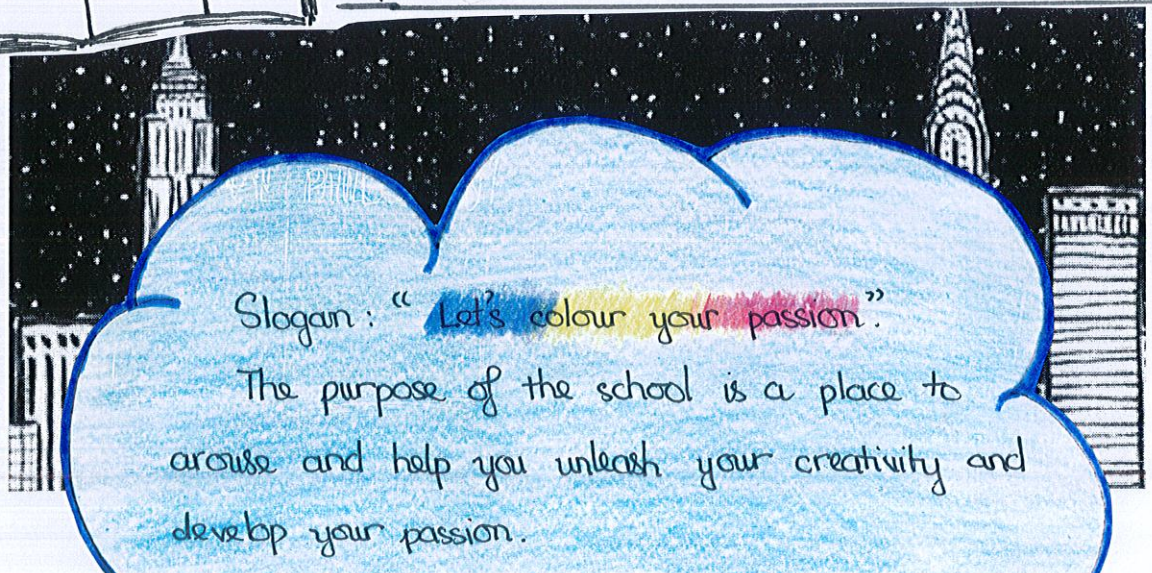 Slogan: “Let's colour your passion”.
The purpose of the school is a place to
arouse and help you unleash your creativity and
develop your passion.